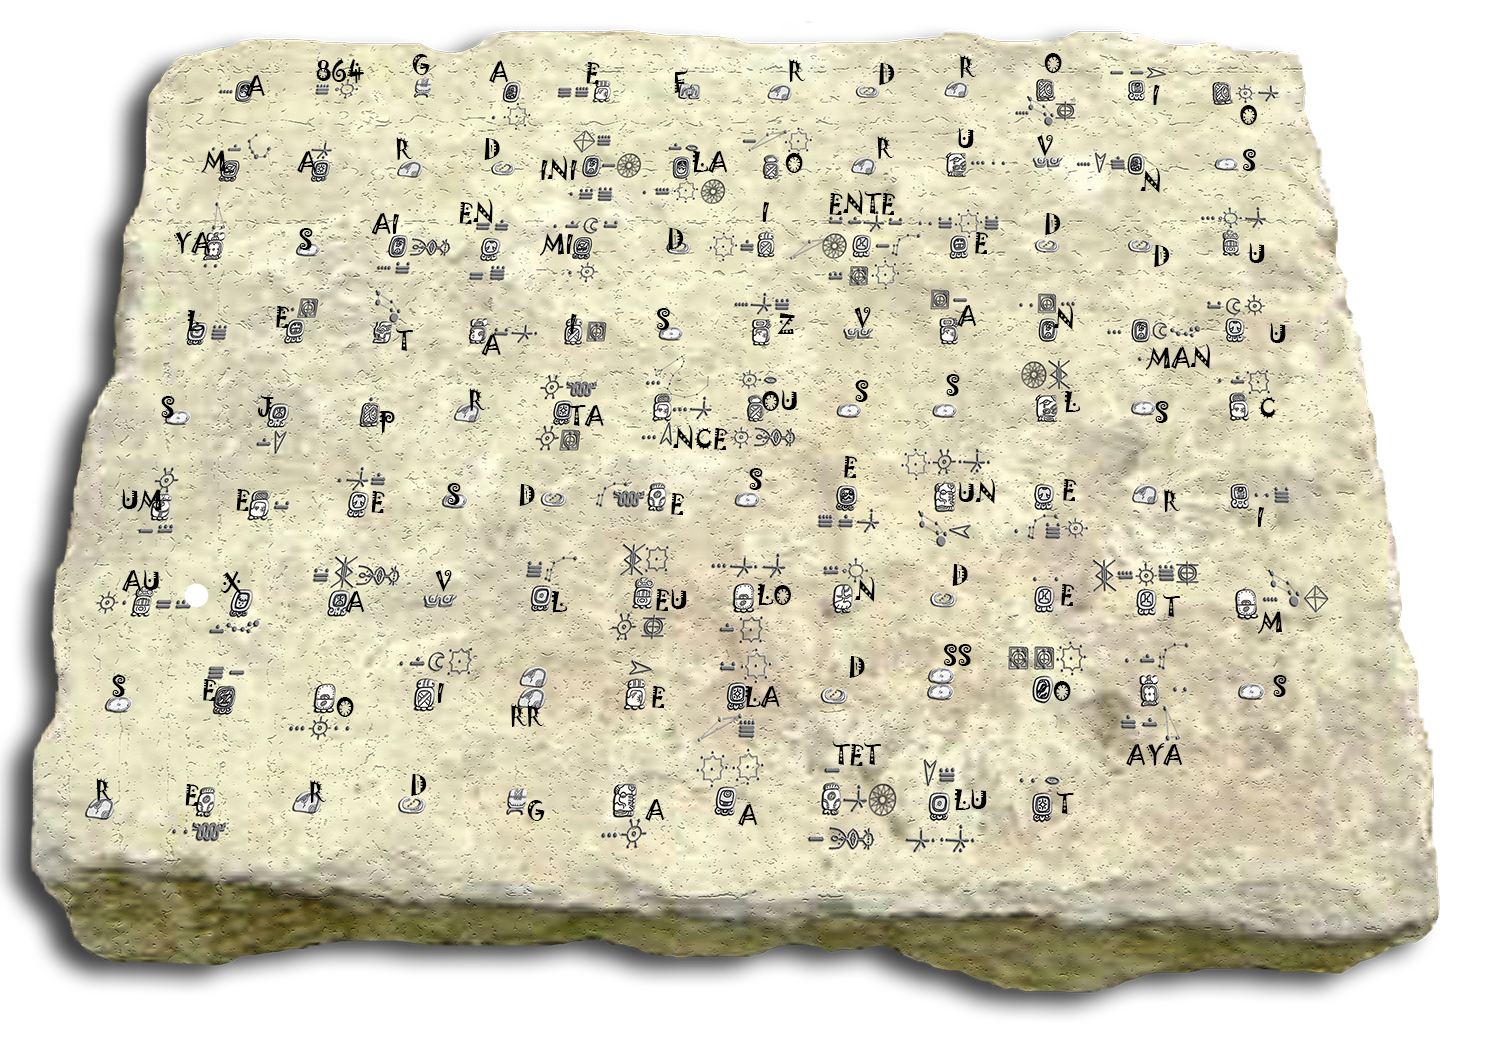 A 864 G A E F R D R O I O
M A R D INI LA O R U V N S
YA S AI EN MI D I ENTE E D D U
L E T A I S Z V A N MAN U
S J P R TA NCE OU S S L S C
UM E E S D E S E UN E R I
AU X A V L EU LO N D E T M
S E O I RR E LA D SS O AYA S
R E R D G A A TET LU T